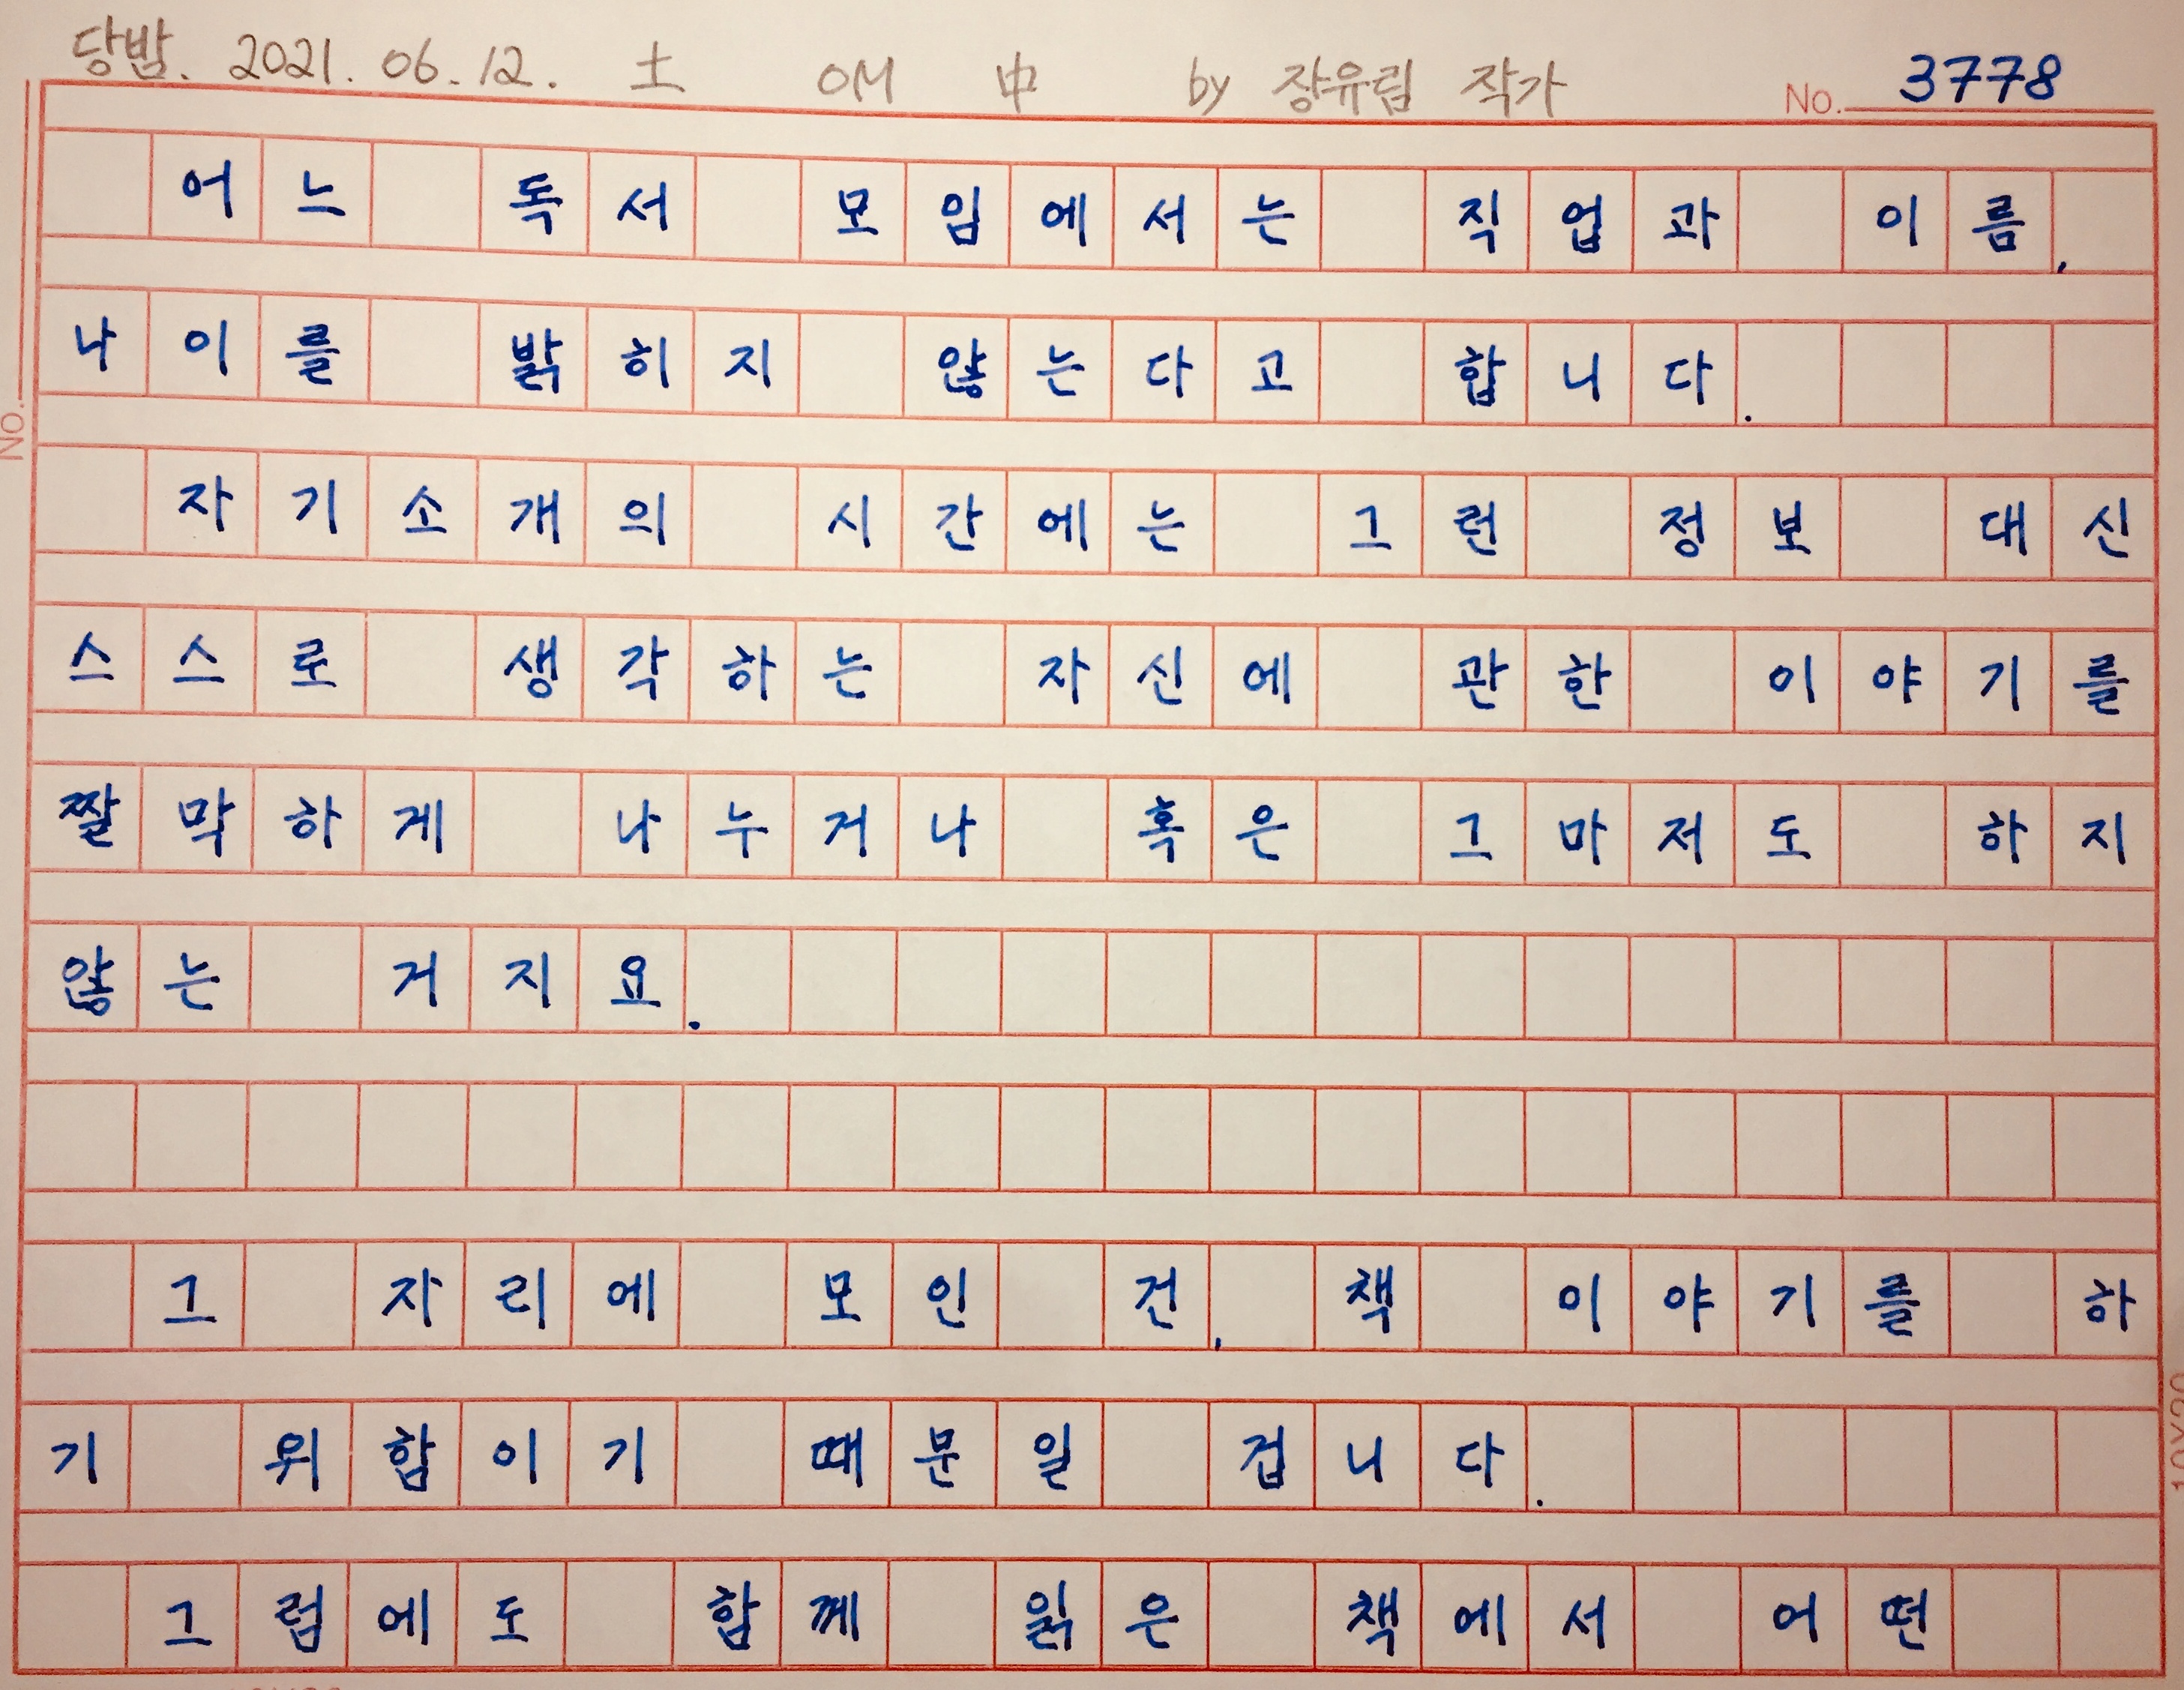 당밤. 2021. 06. 12. 土 OM 中 by 장유림 작가
No. 3778
어느 독서 모임에서는 직업과 이름,
나이를 밝히지 않는다고 합니다.
No.
자기소개의 시간에는 그런 정보 대신
스스로 생각하는 자신에 관한 이야기를
짤막하게 나누거나 혹은 그마저도 하지
않는 거지요.
그 자리에 모인 건, 책 이야기를 하
기 위함이기 때문일 겁니다.
그럼에도 함께 읽은 책에서 어떤